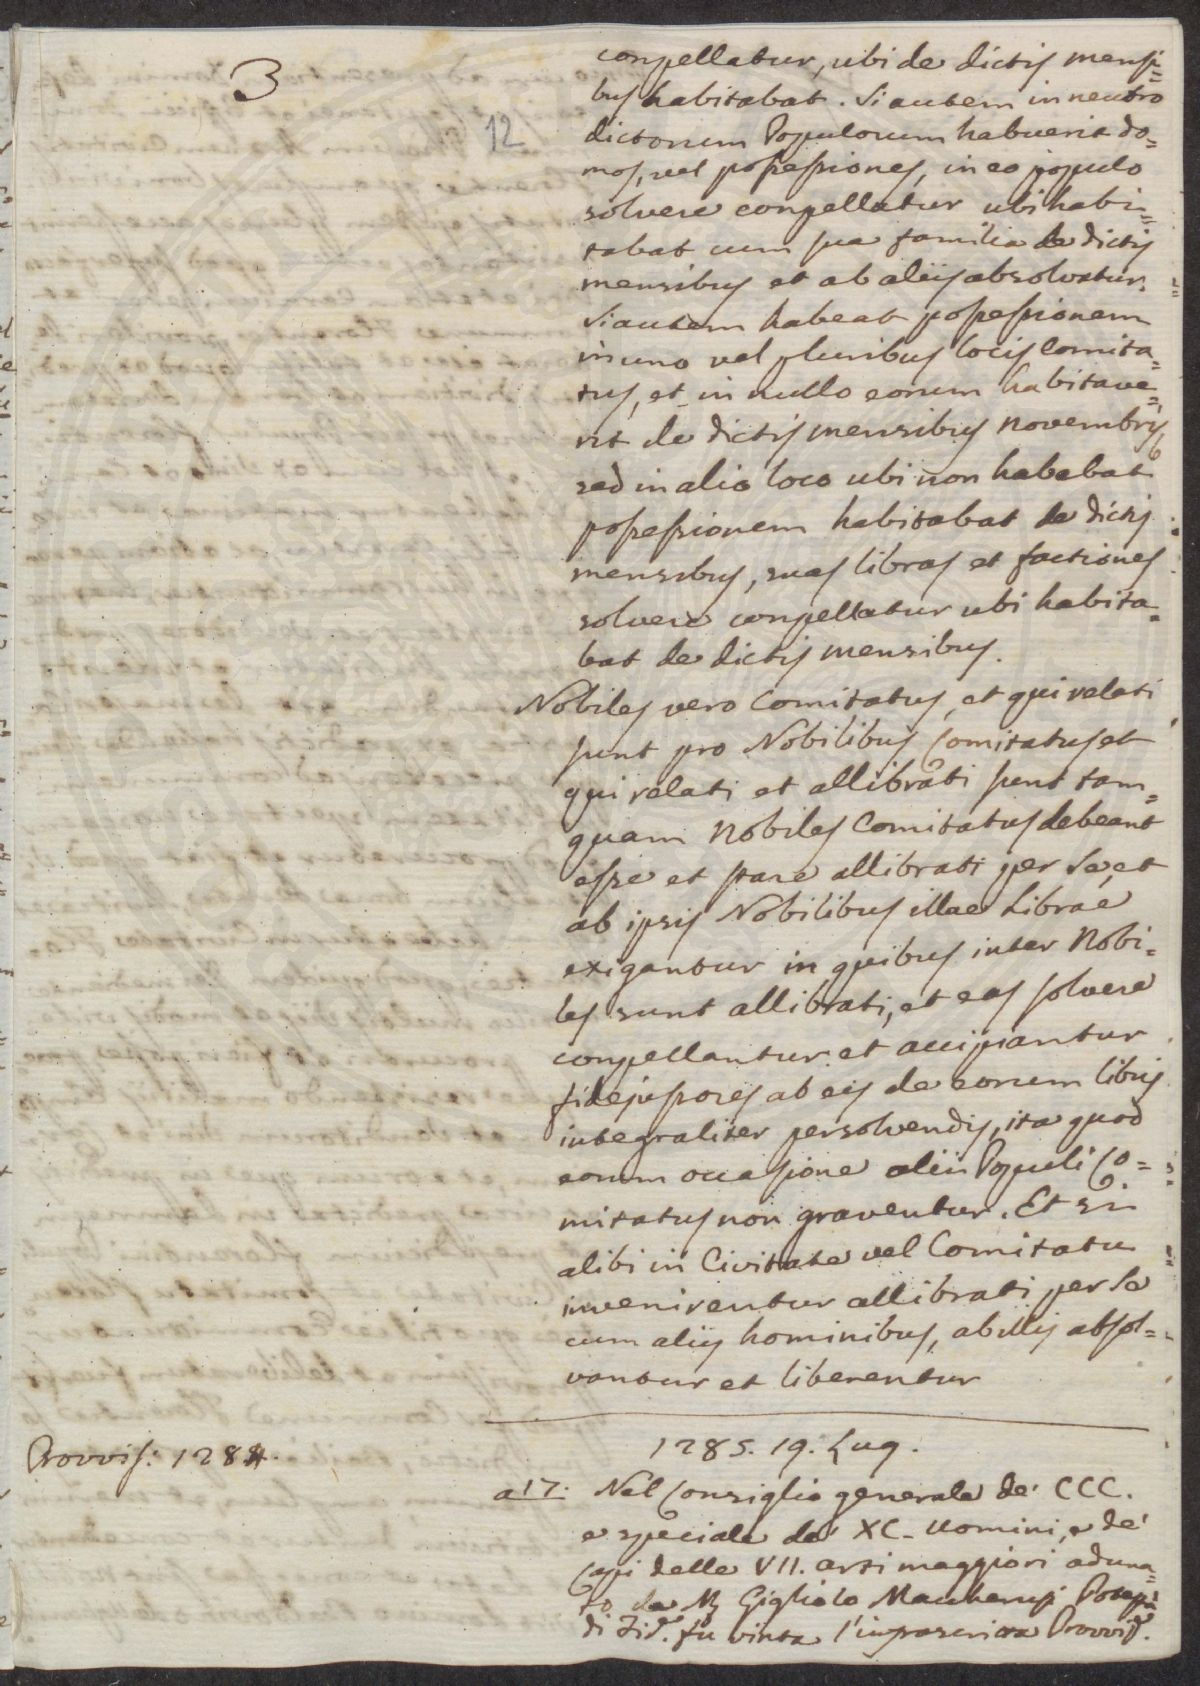 3
12
conpellatur, ubi de dictis mensi=
bus habitabat. Si autem in neutro
dictorum Populorum habuerit do=
mos, vel possessiones, in eo populo
solvere conpellatur ubi habi=
tabat cum sua familia de dictis
mensibus et ab aliis absolvatur.
Si autem habeat possessionem
in uno vel pluribus locis Comita=
tus, et in nullo eorum habitave=
rit de dictis mensibus novembris
sed in alio loco ubi non habebat
possessionem habitabat de dictis
mensibus, suas libras et factiones
solvere conpellatur ubi habita=
bat de dictis mensibus.
Nobiles vero Comitatus, et qui relati
sunt pro Nobilibus Comitatus et
qui relati et allibrati sunt tam=
quam Nobiles Comitatus debeant
esse et stare allibrati per se, et
ab ipsis Nobilibus illae Librae
exigantur in quibus inter Nobi=
les sunt allibrati, et eas solvere
conpellantur et accipiantur
fidejussores ab eis de eorum libris
integraliter persolvendis, ita quod
eorum occasione alii Populi Co=
mitatus non graventur. Et si
alibi in Civitate vel Comitatu
invenirentur allibrati per se
cum aliis hominibus, ab illis absol=
vantur et liberentur
1285. 19. Lug.
Provvis: 1284.
a 17. Nel Consiglio generale de' CCC.
e speciale de' XC. Uomini, e de'
Capi delle VII. arti maggiori aduna=
to da Giglolo Potestà
di Fid. fu vinta l'infrascritta Provvis.